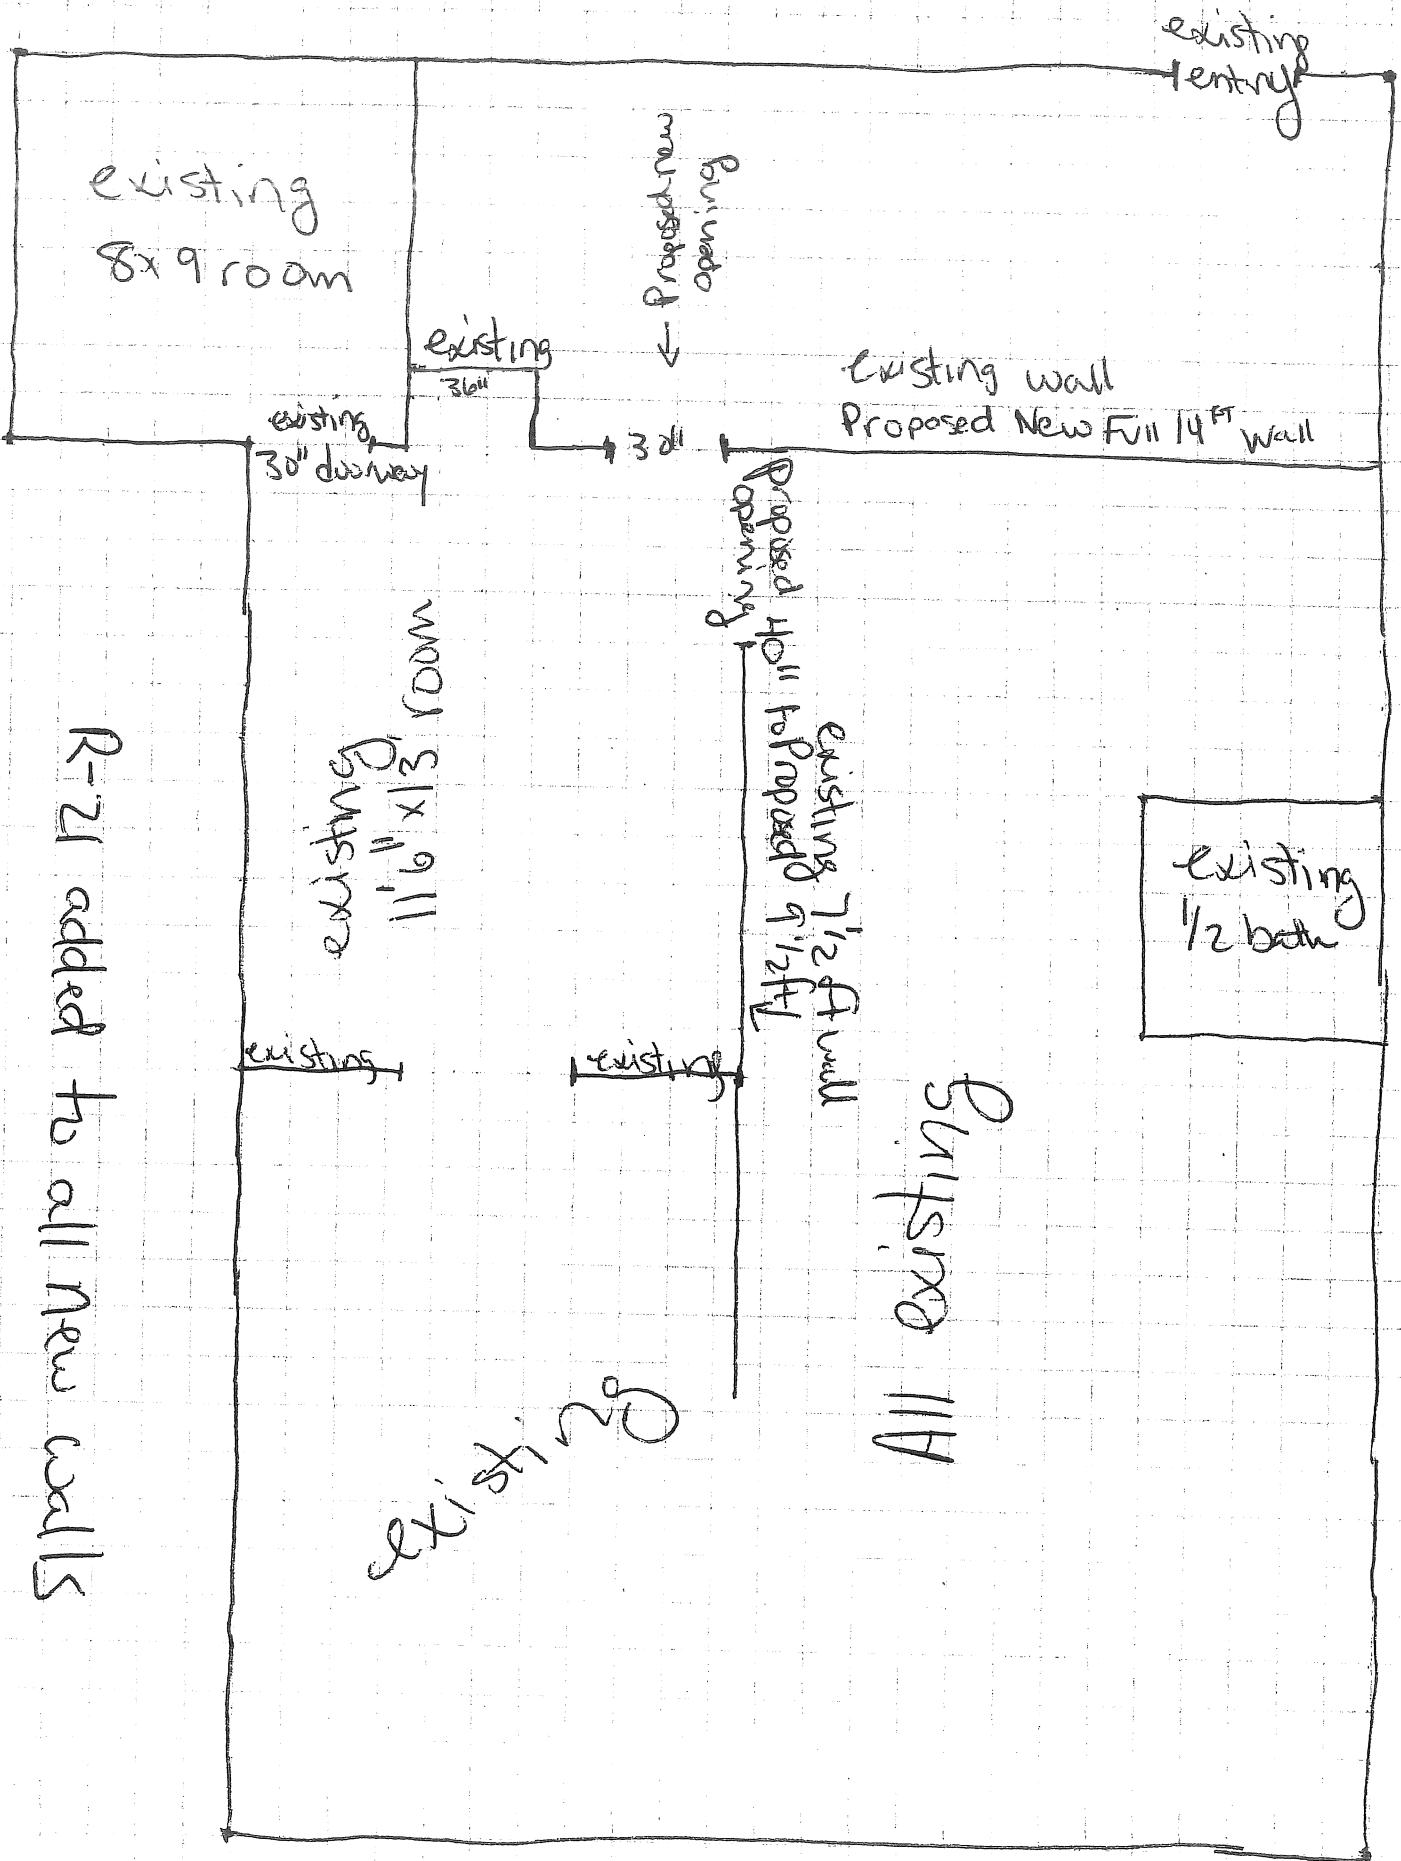 existing
entry
existing
8x9 room
Proposed new
opening
existing
36"
existing wall
Proposed New Full 14FT wall
existing
30" doorway
30"
Proposed Hall to Proposed 9 1/2 ft
opening
existing 7 1/2 ft wall
existing
11'6" x13' room
existing
1/2 bath
existing
existing
All existing
existing
R-21 added to all new walls